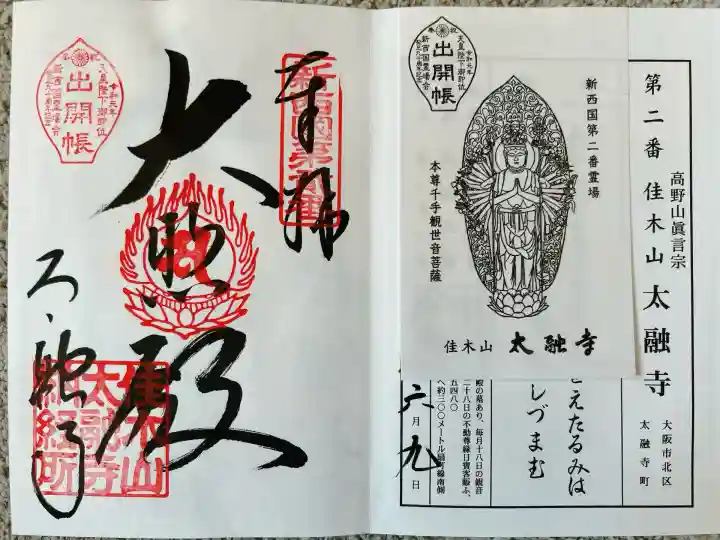 奉拝
新西國第貳番
大悲殿
太融寺
佳木山
太融寺
納経所
出開帳
令和元年
天皇陛下御即位
新西国霊場会
第二番 佳木山 太融寺
高野山眞言宗
大阪市北区
太融寺町
出開帳
天皇陛下御即位
新西国霊場会
新西国第二番霊場
本尊千手観世音菩薩
佳木山 太融寺
えたるみは
しづまむ
殿の墓あり、毎月十八日の観音
二十八日の不動尊縁日賓客賑ふ、
五四八〇
へ約三〇〇メートル扇町線南側
六月九日